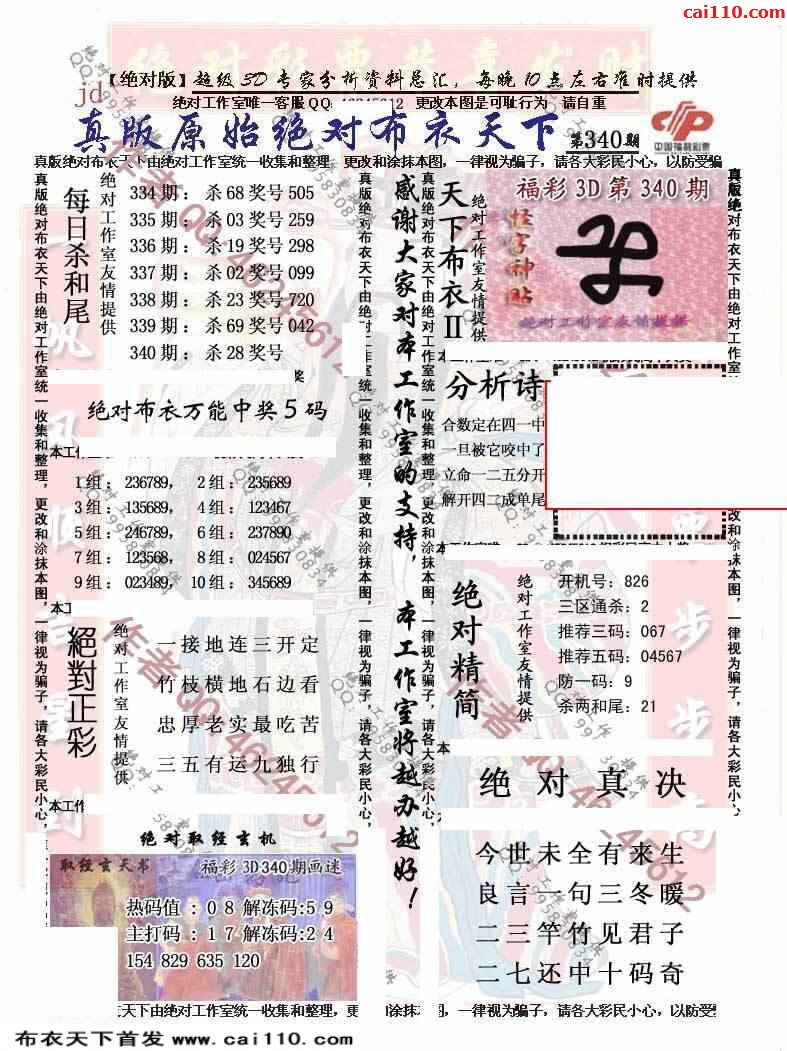 cai110.com
【绝对版】超级3D专家分析资料总汇，每晚10点左右准时提供
jd
绝对工作室唯一客服QQ: 更改本图是可耻行为 请自重
真版原始绝对布衣天下 第340期
中国福利彩票
真版绝对布衣天下由绝对工作室统一收集和整理，更改和涂抹本图，一律视为骗子，请各大彩民小心，以防受骗
真版绝对布衣天下由绝对工作室统一收集和整理，更改和涂抹本图，一律视为骗子，请各大彩民小心，
每日杀和尾
绝对工作室友情提供
334期：杀68奖号505
335期：杀03奖号259
336期：杀19奖号298
337期：杀02奖号099
338期：杀23奖号720
339期：杀69奖号042
340期：杀28奖号
绝对布衣万能中奖5码
1组：236789，2组：235689
3组：135689，4组：123467
5组：246789，6组：237890
7组：123568，8组：024567
9组：023489，10组：345689
絕對正彩
绝对工作室友情提供
一接地连三开定
竹枝横地石边看
忠厚老实最吃苦
三五有运九独行
本工作
绝对取经玄机
取经玄天书 福彩3D340期画迷
热码值：08解冻码:59
主打码：17解冻码:24
154 829 635 120
真版绝对布衣天下由绝对工作室统一收集和整理，更改和涂抹本图，一律视为骗子，请各大彩民小心，
感谢大家对本工作室的支持，本工作室将越办越好！
真版绝对布衣天下由绝对工作室统一收集和整理，更改和涂抹本图，一律视为骗子，请各大彩民小心，
天下布衣II
绝对工作室友情提供
福彩3D第340期
怪字神贴
绝对工作室友情提供
分析诗
合数定在四一中
一旦被它咬中了
立命一二五分开
解开四二成单尾
绝对精简
绝对工作室友情提供
开机号：826
三区通杀：2
推荐三码：067
推荐五码：04567
防一码：9
杀两和尾：21
绝对真决
今世未全有来生
良言一句三冬暖
二三竿竹见君子
二七还中十码奇
真版绝对布衣天下由绝对工作室
改和涂抹本图，一律视为骗子，请各大彩民小心，
衣天下由绝对工作室统一收集和整理，更
和涂抹本图，一律视为骗子，请各大彩民小心，以防受
布衣天下首发 www.cai110.com